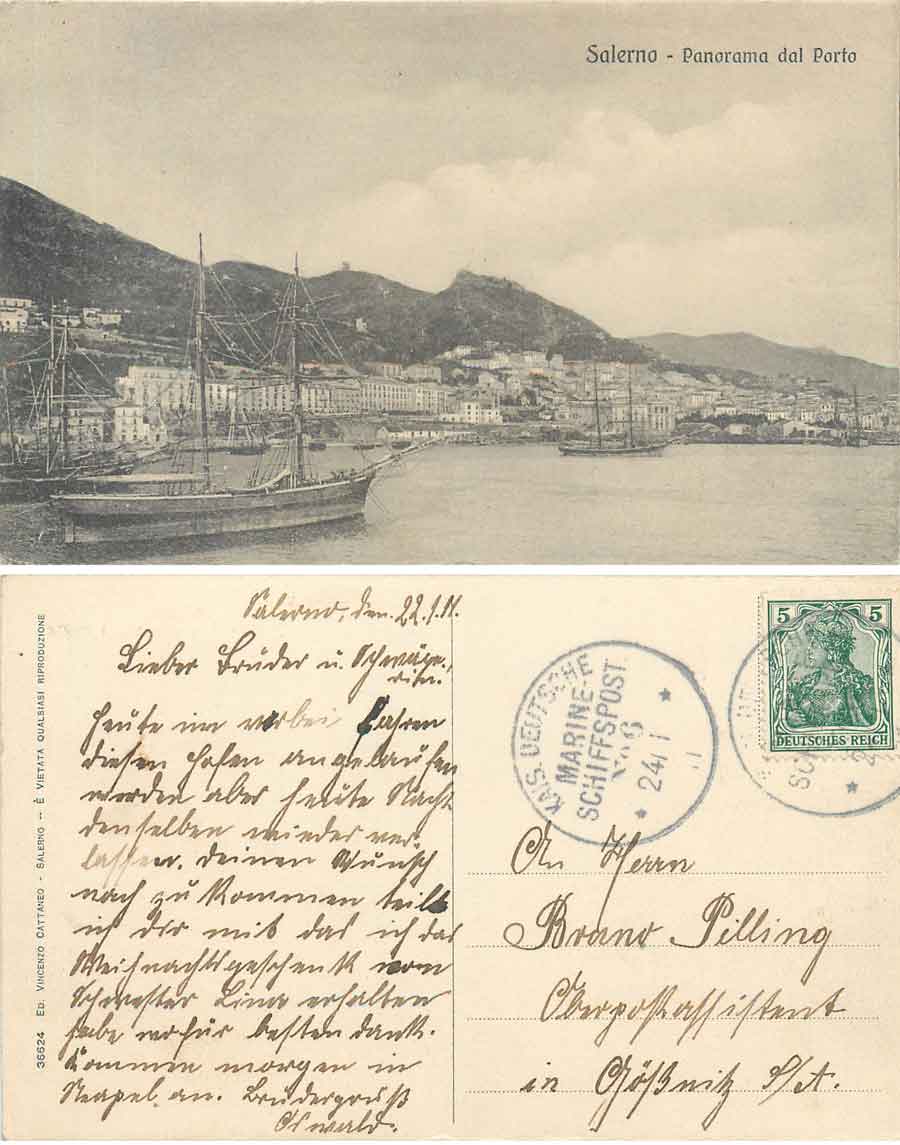 Salerno - Panorama dal Porto
Salerno, den. 22.1.11.
Lieber Bruder u. Schwäge-
rin!
Heute im vorbei fahren
diesen Hafen angelaufen
werden aber heute Nacht
denselben wieder ver-
lassen. Deinen Wunsch
nach zu kommen teile
ich dir mit das ich das
Weihnachtsgeschenk vom
Schwester Lina erhalten
habe wofür besten dank.
Kommen morgen in
Neapel an. Brudergruß
Oswald.
36624 ED. VINCENZO CATTANEO - SALERNO -- È VIETATA QUALSIASI RIPRODUZIONE
KAIS. DEUTSCHE
MARINE-
SCHIFFSPOST
* 24 1 11 *
5 5
DEUTSCHES REICH
An Herrn
Bruno Pilling
Oberpostassistent
in Gößnitz S/A.